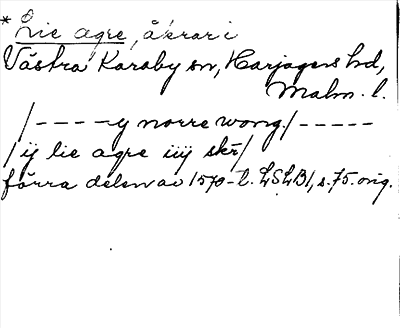 * Lie agre, åkrar i
Västra Karaby sn, Harjagers hd,
Malm. l.
/----y norre wong/-----
/ij lie agre iiij skr/
förra delen av 1570-t. LSLB1, s. 75. orig.